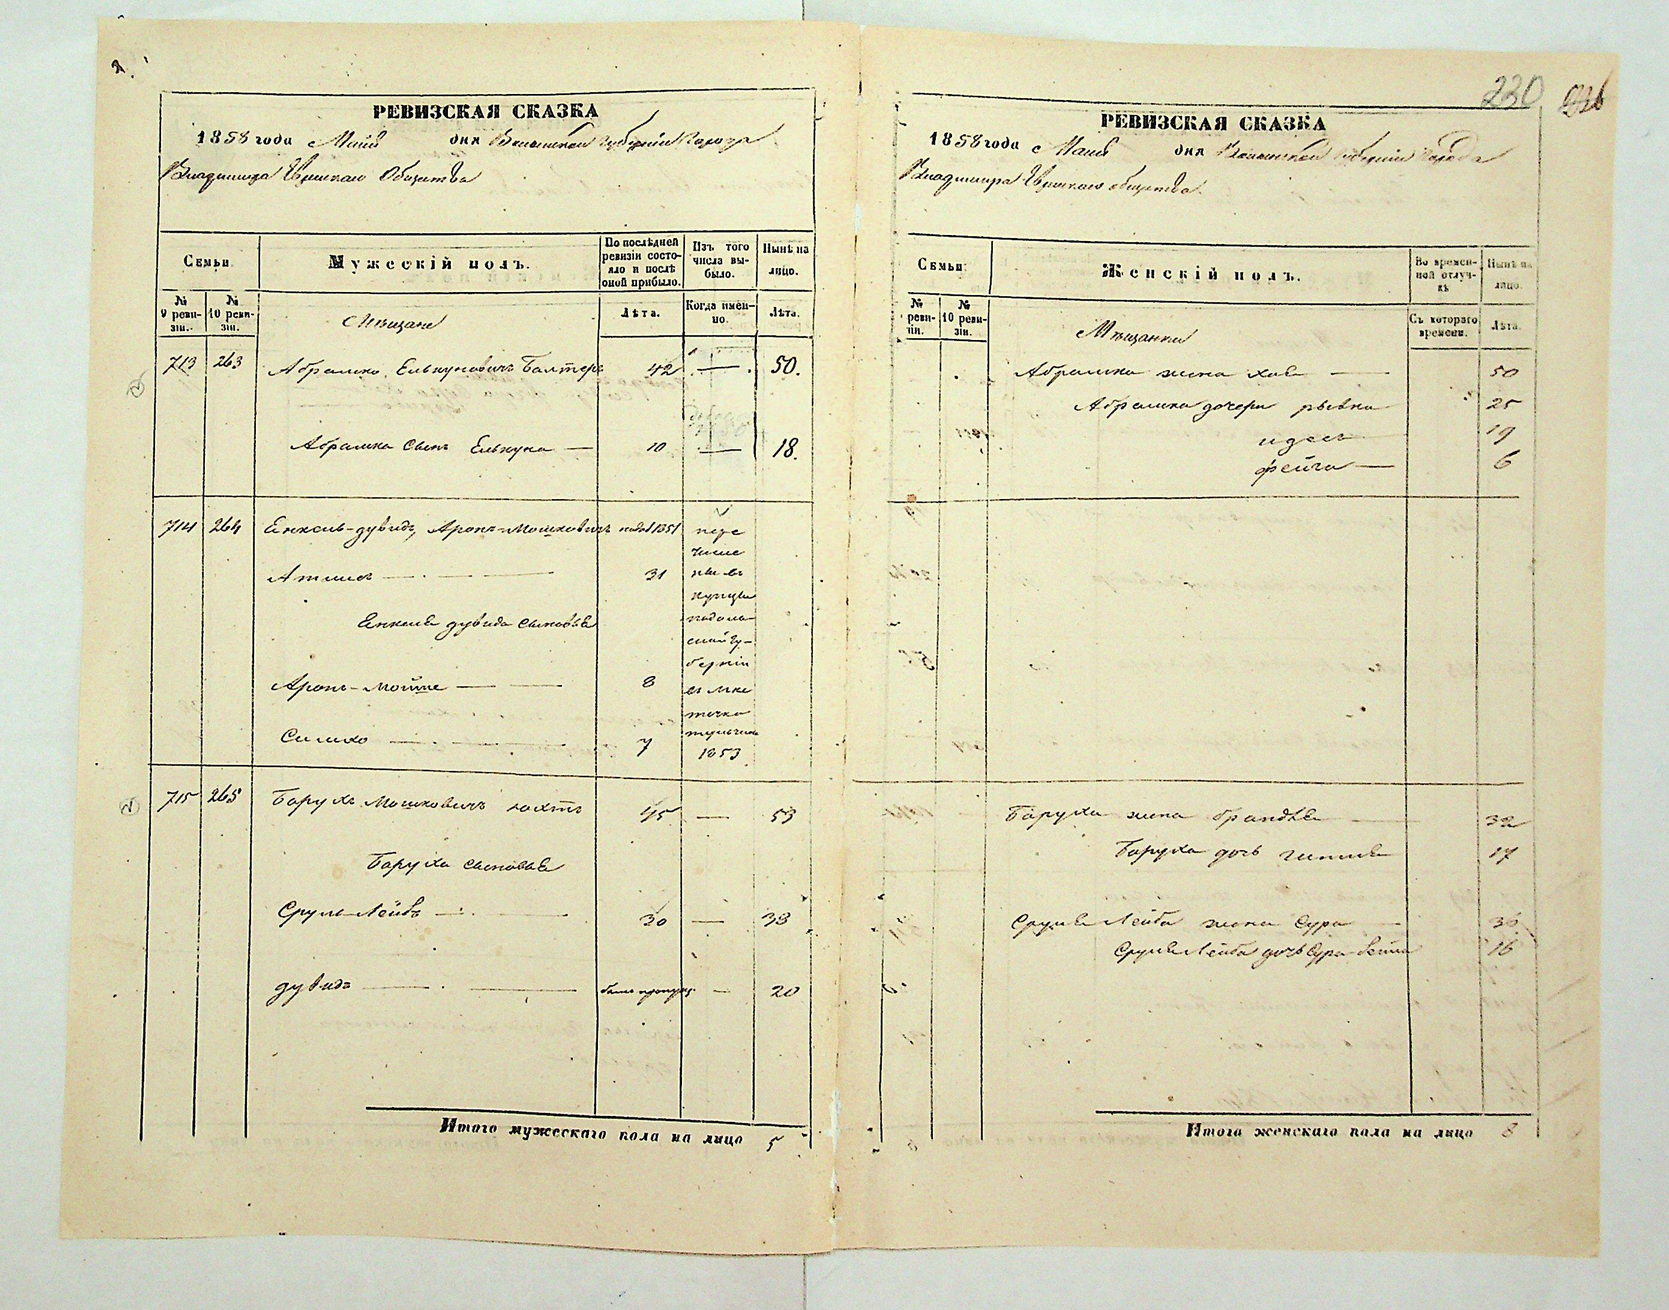 РЕВИЗСКАЯ СКАЗКА
1858 года с Маія дня Волынской Губерніи Города
Владимира Еврейскаго Общества
Семьи.
Мужескій полъ.
По послѣдней ревизіи состояло и послѣ оной прибыло.
Изъ того числа выбыло.
Нынѣ на лицо.
№ 9 ревизіи.
№ 10 ревизіи.
Мѣщане
Лѣта.
Когда именно.
Лѣта.
713 263 Абрамко Елькуновичъ Балтеръ 42 — 50.
Абрамка сынъ Елькуна — 10 — 18.
714 264 Енкель-дувидъ Аронъ-Мошковичъ 1851
пере
числе
Атлисъ — 31 ны въ
купцы
Енкеля дувида сыновья подоль
ской гу-
берніи
Аронъ-Мойше — 8 въ мѣс
течко
Симхо — 7
1853
715 265 Барухъ Мошковичъ 45 — 53
Баруха сыновья
Сруль-Лейба — 30 — 38
дувидъ — былъ пропущ. — 20
Итого мужескаго пола на лицо 5
230
РЕВИЗСКАЯ СКАЗКА
1858 года с Маія дня Волынской Губерніи Города
Владимира Еврейскаго общества.
Семьи.
Женскій полъ.
Во временной отлучкѣ
Нынѣ на лицо.
№ ревизіи.
№ 10 ревизіи.
Мѣщанки
Съ котораго времени.
Лѣта.
Абрамка жена Хая — 50
Абрамка дочери рывка 25
идесъ 19
фейга — 6
Баруха жена брандля — 32
Баруха дочь 17
Сруля Лейба жена Сура — 36
Сруля Лейба дочь Сура-бейла 16
Итого женскаго пола на лицо 8